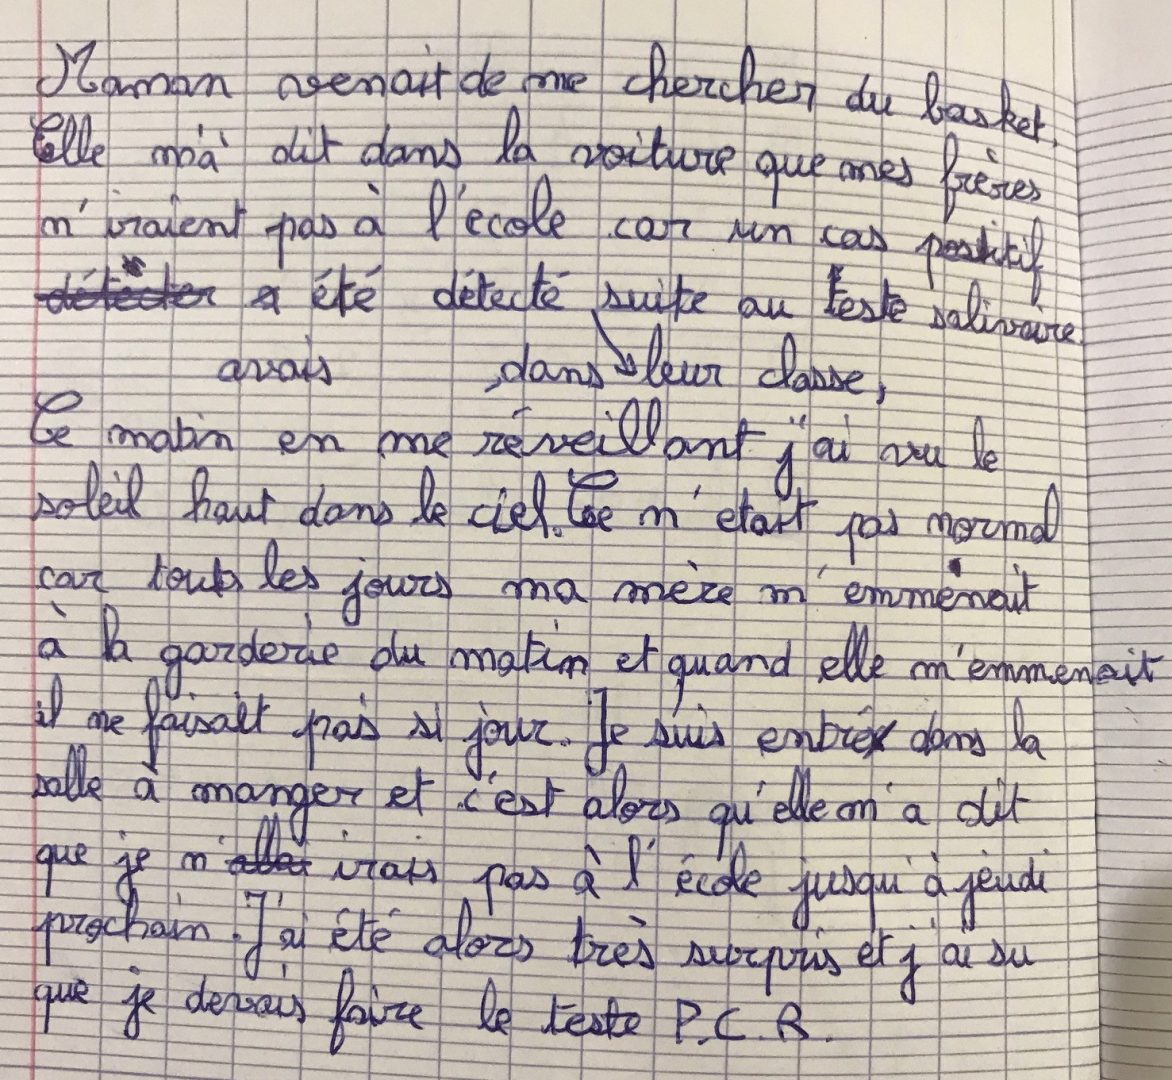 Maman venait de me chercher du basket.
Elle m'à dit dans la voiture que mes frères
n'iraient pas à l'école car un cas positif
détécter a été détecté suite au teste salivaire
avais ,dans leur classe,
Ce matin en me réveillant j'ai vu le
soleil haut dans le ciel. Ce n'etait pas normal
car touts les jours ma mère m'emmenait
à la garderie du matin et quand elle m'emmenait
il ne faisait pas si jour. Je suis entré dans la
salle à manger et c'est alors qu'elle m'a dit
que je n'allai irais pas à l'école jusqu'à jeudi
prochain. J'ai été alors très surpris et j'ai su
que je devais faire le teste P.C.R.